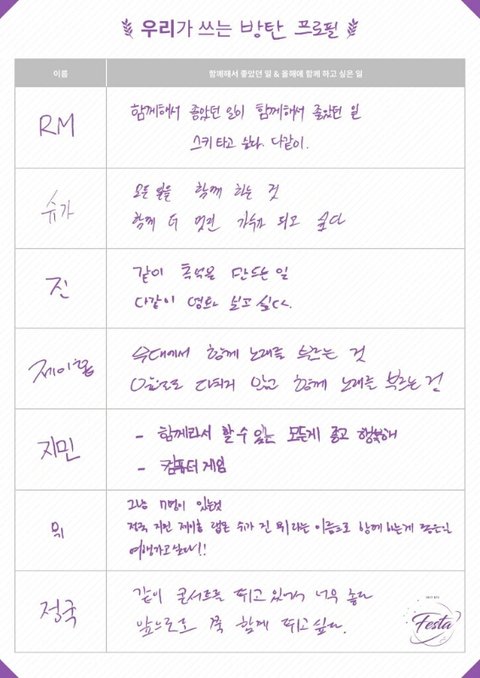 우리가 쓰는 방탄 프로필
이름
함께해서 좋았던 일 & 올해에 함께 하고 싶은 일
RM
함께해서 좋았던 일이 함께해서 좋았던 일
스키 타고 싶다. 다같이.
슈가
모든 일을 함께 하는 것
함께 더 멋진 가수가 되고 싶다
진
같이 추억을 만드는 일
다같이 영화 보고 싶다.
제이홉
무대에서 함께 노래를 부르는 것
앞으로도 다치지 않고 함께 노래를 부르는 것
지민
- 함께라서 할 수 있는 모든게 좋고 행복해
- 컴퓨터 게임
뷔
그냥 7명이 있는것
정국 지민 제이홉 랩몬 슈가 진 뷔라는 이름으로 함께 하는게 좋은일
여행가고싶다!!
정국
같이 콘서트를 뛰고 있어서 너무 좋다
앞으로도 쭉 함께 뛰고싶다.
Festa